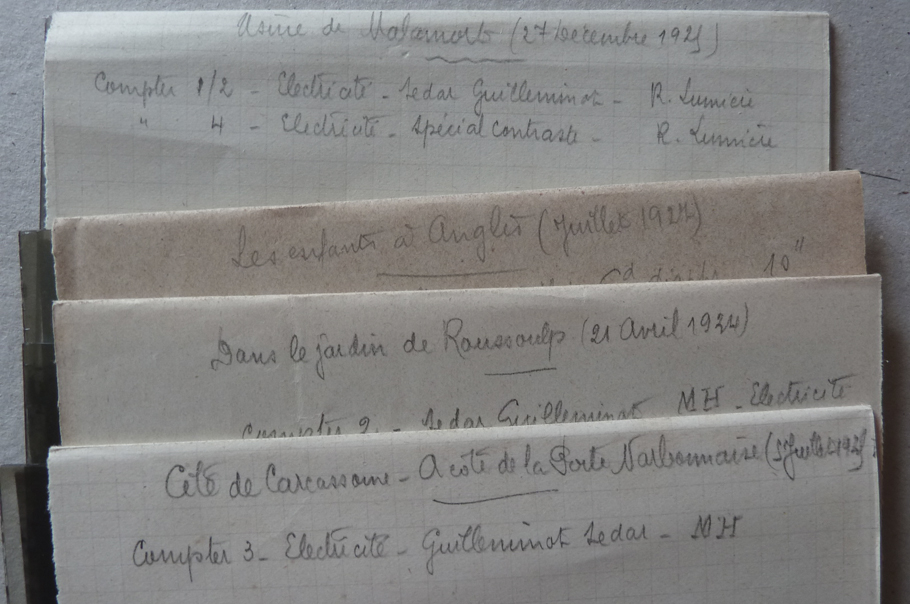 Usine de Malamort (27 Décembre 1925)
Compter 1/2 - Electricité - Sedar Guilleminot - R. Lumière
" 4 - Electricité - Spécial contraste - R. Lumière
Les enfants à Anglès (Juillet 1927)
10"
Dans le jardin de Roussoulp (21 Avril 1924)
Compter 2 - Sedar Guilleminot MH - Electricité
Cité de Carcassonne - A coté de la Porte Narbonnaise (5 Juillet 192
Compter 3 - Electricité - Guilleminot Sedar - MH